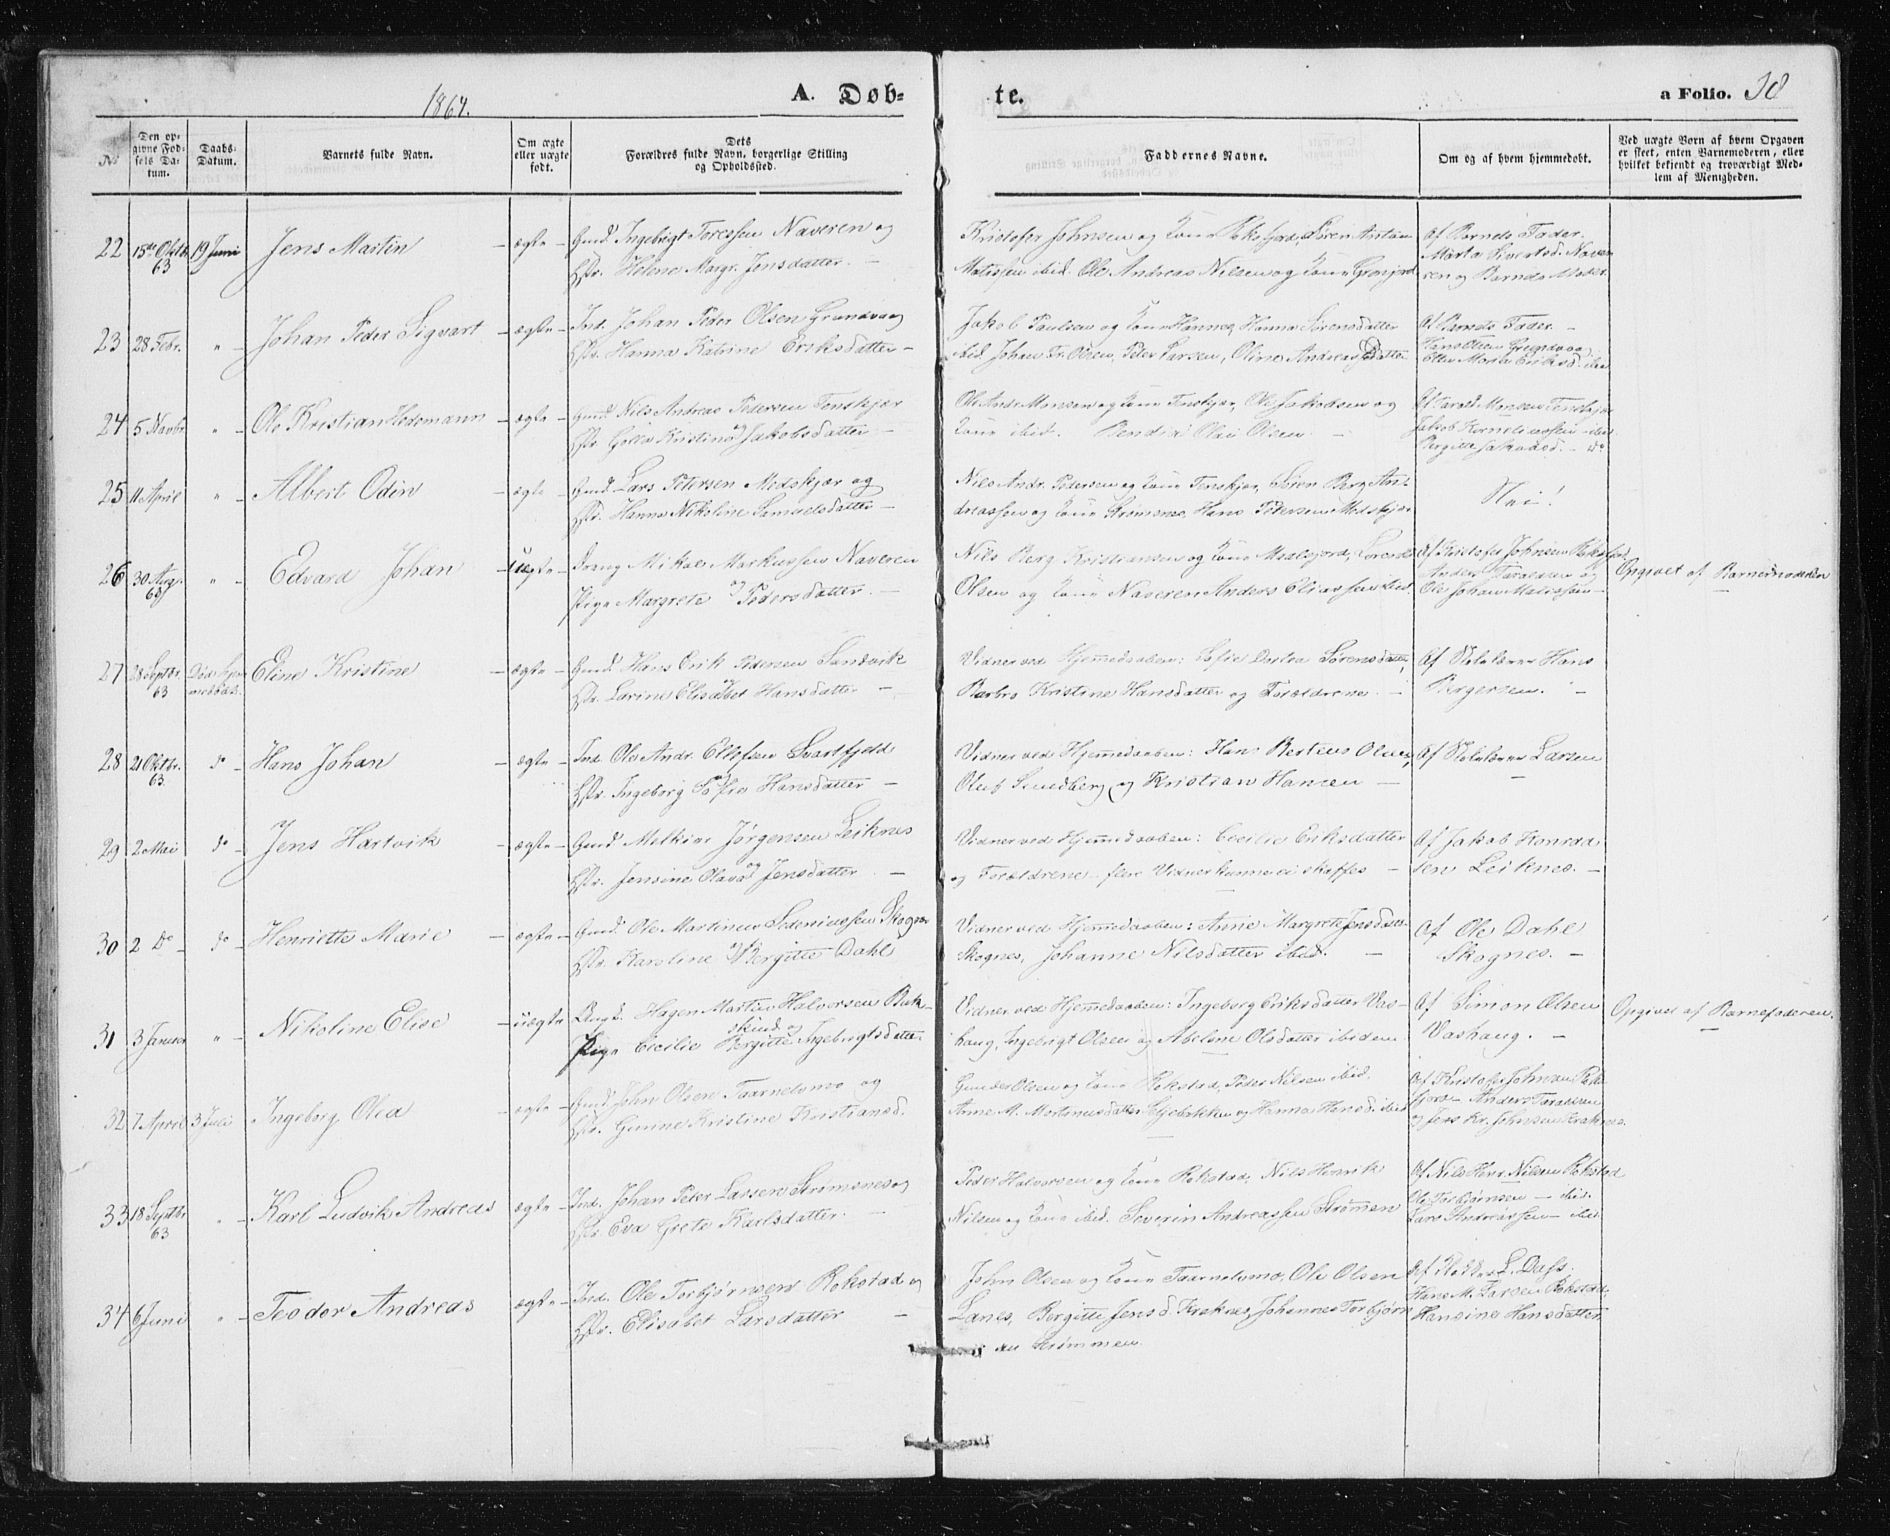 1864.
A. Døb-
te.
a Folio. 38
No
Den op-
givne Fød-
sels Da-
tum.
Daabs-
Datum.
Barnets fulde Navn.
Om ægte
eller uægte
født.
Dets
Forældres fulde Navn, borgerlige Stilling
og Opholdssted.
Faddernes Navne.
Om og af hvem hjemmedøbt.
Ved uægte Børn af hvem Opgaven
er skeet, enten Barnemoderen, eller
hvilket bekjendt og troværdigt Med-
lem af Menigheden.
22 15de Oktbr. 63 19 Juni Jens Martin – ægte –
Gmd. Ingebrigt Toressen Naveren og
Hstr. Helene Margr. Jensdatter. –
Kristofer Johnsen og Kone Roksfjord, Søren Anton
Matissen ibid. Ole Andreas Nilsen og Kone Grønjord
Af Barnets Fader.
Marta Sivertsd. Nave-
ren og Barnets Moder.
23 28 Febr. " – Johan Peder Sigvart – ægte –
Ind. Johan Peder Olsen Grundvaag
Hstr. Hanna Katrine Eriksdatter –
Jakob Paulsen og Kone Hannes, Hanna Sørensdatter
ibid Johan Fr. Olsen, Peter Larsen, Oline Andreasdatter
Af Barnets Fader. –
Hans Olsen Grundvaag
Ellen Marta Eriksd. ibid
24 5 Novbr. " – Ole Kristian Hedemann – ægte –
Gmd. Nils Andreas Pedersen Tenskjær
Hstr. Golla Kristine og Jakobsdatter –
Ole Andr. Monsen og Kone Tenskjær, Ole Jakobsen og
Kone ibid. Bendix Olai Olsen. –
Af Tarald Monsen Tenskjær
Jakob Korneliussen – ibid
Bergitte Jakobsd. – do
25 11 April " – Albert Odin – ægte –
Gmd. Lars Petersen Medskjær og
Hstr. Hanna Nikoline Samuelsdatter –
Nils Andr. Pedersen og Kone Tenskjær, Søren Berg An-
dreassen og Kone Strømsnes, Hans Petersen Medskjær
Nei!
26 30 Aug. 63 " – Edvard Johan – uægte –
Dreng Mikal Markussen Naveren
Pige Margrete og Pedersdatter. –
Nils Berg Kristiansen og Kone Mealsjord, Sørend
Olsen og Kone Naveren Anders Eliassen ibid.
Af Kristofer Johnsen Roksfjord,
Anders Taraldsen og
Ole Johan Matiassen –
Opgivet af Barnemoderen
27 28 Septbr. 63 Død hjem-
medøbt. Eline Kristine – ægte –
Gmd. Hans Erik Pedersen Sandvik
Hstr. Larine Elisabet Hansdatter –
Vidner ved Hjemmedaaben: Sofie Dortea Sørensdatter,
Barbro Kristine Hansdatter og Forældrene. –
Af Skolelærer Hans
Bergersen. –
28 21 Oktbr. 63. do – Hans Johan – ægte –
Ind. Ole Andr. Ellefsen Svartfjeld
Hstr. Ingeborg Sofie Hansdatter –
Vidner ved Hjemmedaaben: Hans Berteus Olsen,
Oluf Sundberg og Kristian Hansen –
Af Skolelærer Larsen
–
29 2 Mai do – Jens Hartvik – ægte –
Gmd. Melkior Jørgensen Leiknes
Hstr. Jensine Olava og Jensdatter –
Vidner ved Hjemmedaaben: Cecilie Eriksdatter
og Forældrene – flere Vidner kunne ei skaffes –
Af Jakob Konrad
sen Leiknes. –
30 2 Do – do – Henriette Marie – ægte –
Gmd. Ole Martinus Sederiussen Skognes
Hstr. Karoline og Bergitte Dahl
Vidner ved Hjemmedaaben: Anne Margrete Jensdatter
Skognes, Johanne Nilsdatter ibid. –
Af Ole Dahl
Skognes. –
31 3 Januar " – Nikoline Elise – uægte –
Ungk. Hagen Martin Halvorsen Buk-
skind og
Pige Cecilie Bergitte Ingebrigtsdatter
Vidner ved Hjemmedaaben: Ingeborg Eriksdatter Vas-
haug, Ingebrigt Olsen og Abelone Olsdatter ibidem
Af Simon Olsen
Vashaug. –
Opgivet af Barnefaderen.
32 7 April 3 Juli Ingeborg Olea – ægte –
Gmd. John Olsen Taarnelvmo og
Hstr. Gurine Kristine Kristiansd.
Gunder Olsen og Kone Rokstad, Peder Nilsen ibid.
Anne M. Mortensdatter Seljebakken og Hanna Hansd. ibid
Af Kristofer Johnsen Roks-
fjord – Anders Taraldsen
og Jens Kr. Johnsen Kraknes.
33 18 Septbr. 63 " – Karl Ludvik Andreas – ægte –
Ind. Johan Peter Larsen Strømsnes og
Hstr. Eva Grete Karlsdatter. –
Peder Halvorsen og Kone Rokstad, Nils Henrik
Nilsen og Kone ibid. Severin Andreassen Strømen
Af Nils Henr. Nilsen Rokstad
Ole Torbjørnsen – ibid.
Lars Andreassen – ibid
34 6 Juni " – Teodor Andreas – ægte –
Ind. Ole Torbjørnsen Rokstad og
Hstr. Elisabet Larsdatter –
John Olsen og Kone Taarnelvmo, Ole Olsen
Lanes, Bergitte Jensd. Kraknes, Johannes Torbjørn
sen Strømmen.
L. Dass,
Hans M. Larsen Rokstad,
Hansine Hansdatter